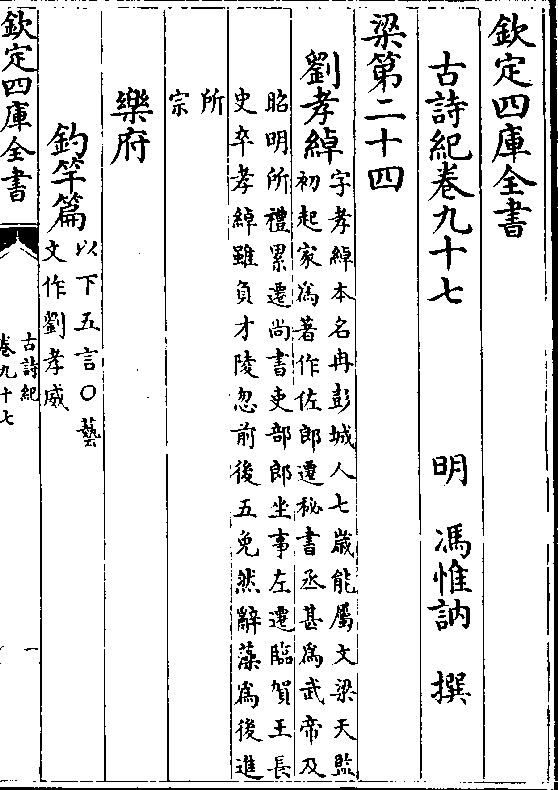 欽定四庫全書
古詩紀卷九十七　明　馮惟訥　撰
梁第二十四
劉孝綽字孝綽本名冉彭城人七歲能屬文梁天監
初起家為著作佐郎遷秘書丞甚為武帝及
昭明所禮累遷尚書吏部郎坐事左遷臨賀王長
史卒孝綽雖負才陵忽前後五免然辭藻為後進
所
宗
樂府
釣竿篇以下五言○藝
文作劉孝威
欽定四庫全書
古詩紀
卷九十七
一